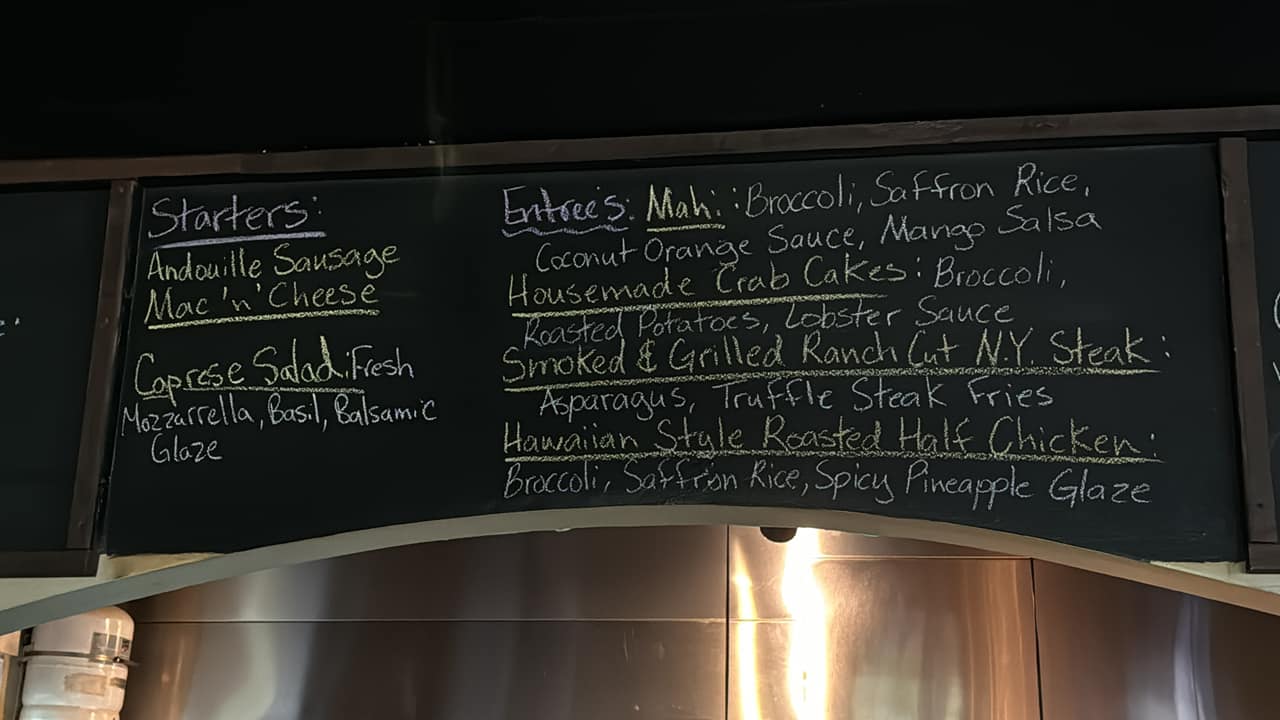 Starters:
Andouille Sausage
Mac 'n' Cheese
Caprese Salad: Fresh
Mozzarrella, Basil, Balsamic
Glaze
Entreé's: Mahi: Broccoli, Saffron Rice,
Coconut Orange Sauce, Mango Salsa
Housemade Crab Cakes: Broccoli,
Roasted Potatoes, Lobster Sauce
Smoked & Grilled Ranch Cut N.Y. Steak:
Asparagus, Truffle Steak Fries
Hawaiian Style Roasted Half Chicken:
Broccoli, Saffron Rice, Spicy Pineapple Glaze